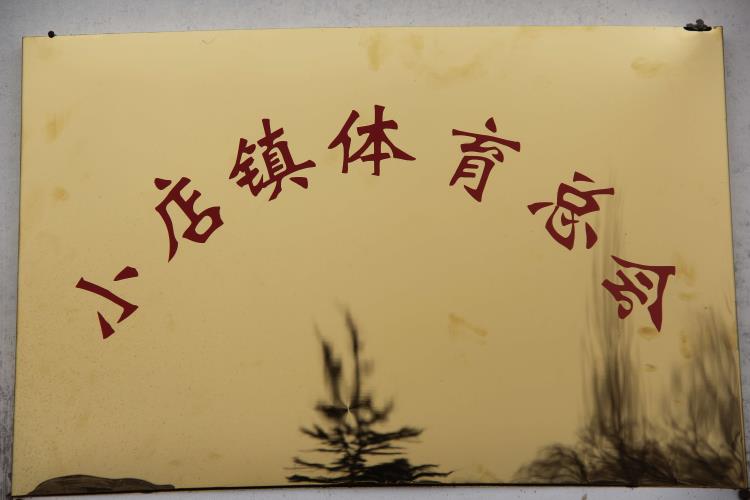 小店镇体育总会